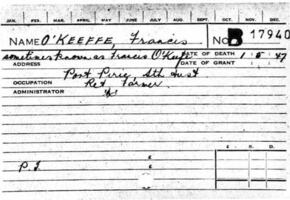 JAN. FEB. MAR. APR. MAY JUNE JULY AUG. SEPT. OCT. NOV. DEC.
NAME O'KEEFFE, Francis No. B 17940
sometimes known as Francis O'Keefe DATE OF DEATH 1 . 5 . 47
ADDRESS DATE OF GRANT
Port Pirie Sth Aust
OCCUPATION Ret Farmer
ADMINISTRATOR
£ S. D.
P.I. £
£